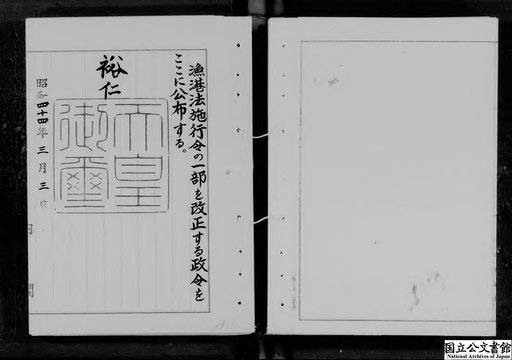 漁港法施行令の一部を改正する政令を
ここに公布する。
裕仁
天皇
御璽
昭和四十四年三月三日
内閣
国立公文書館
National Archives of Japan